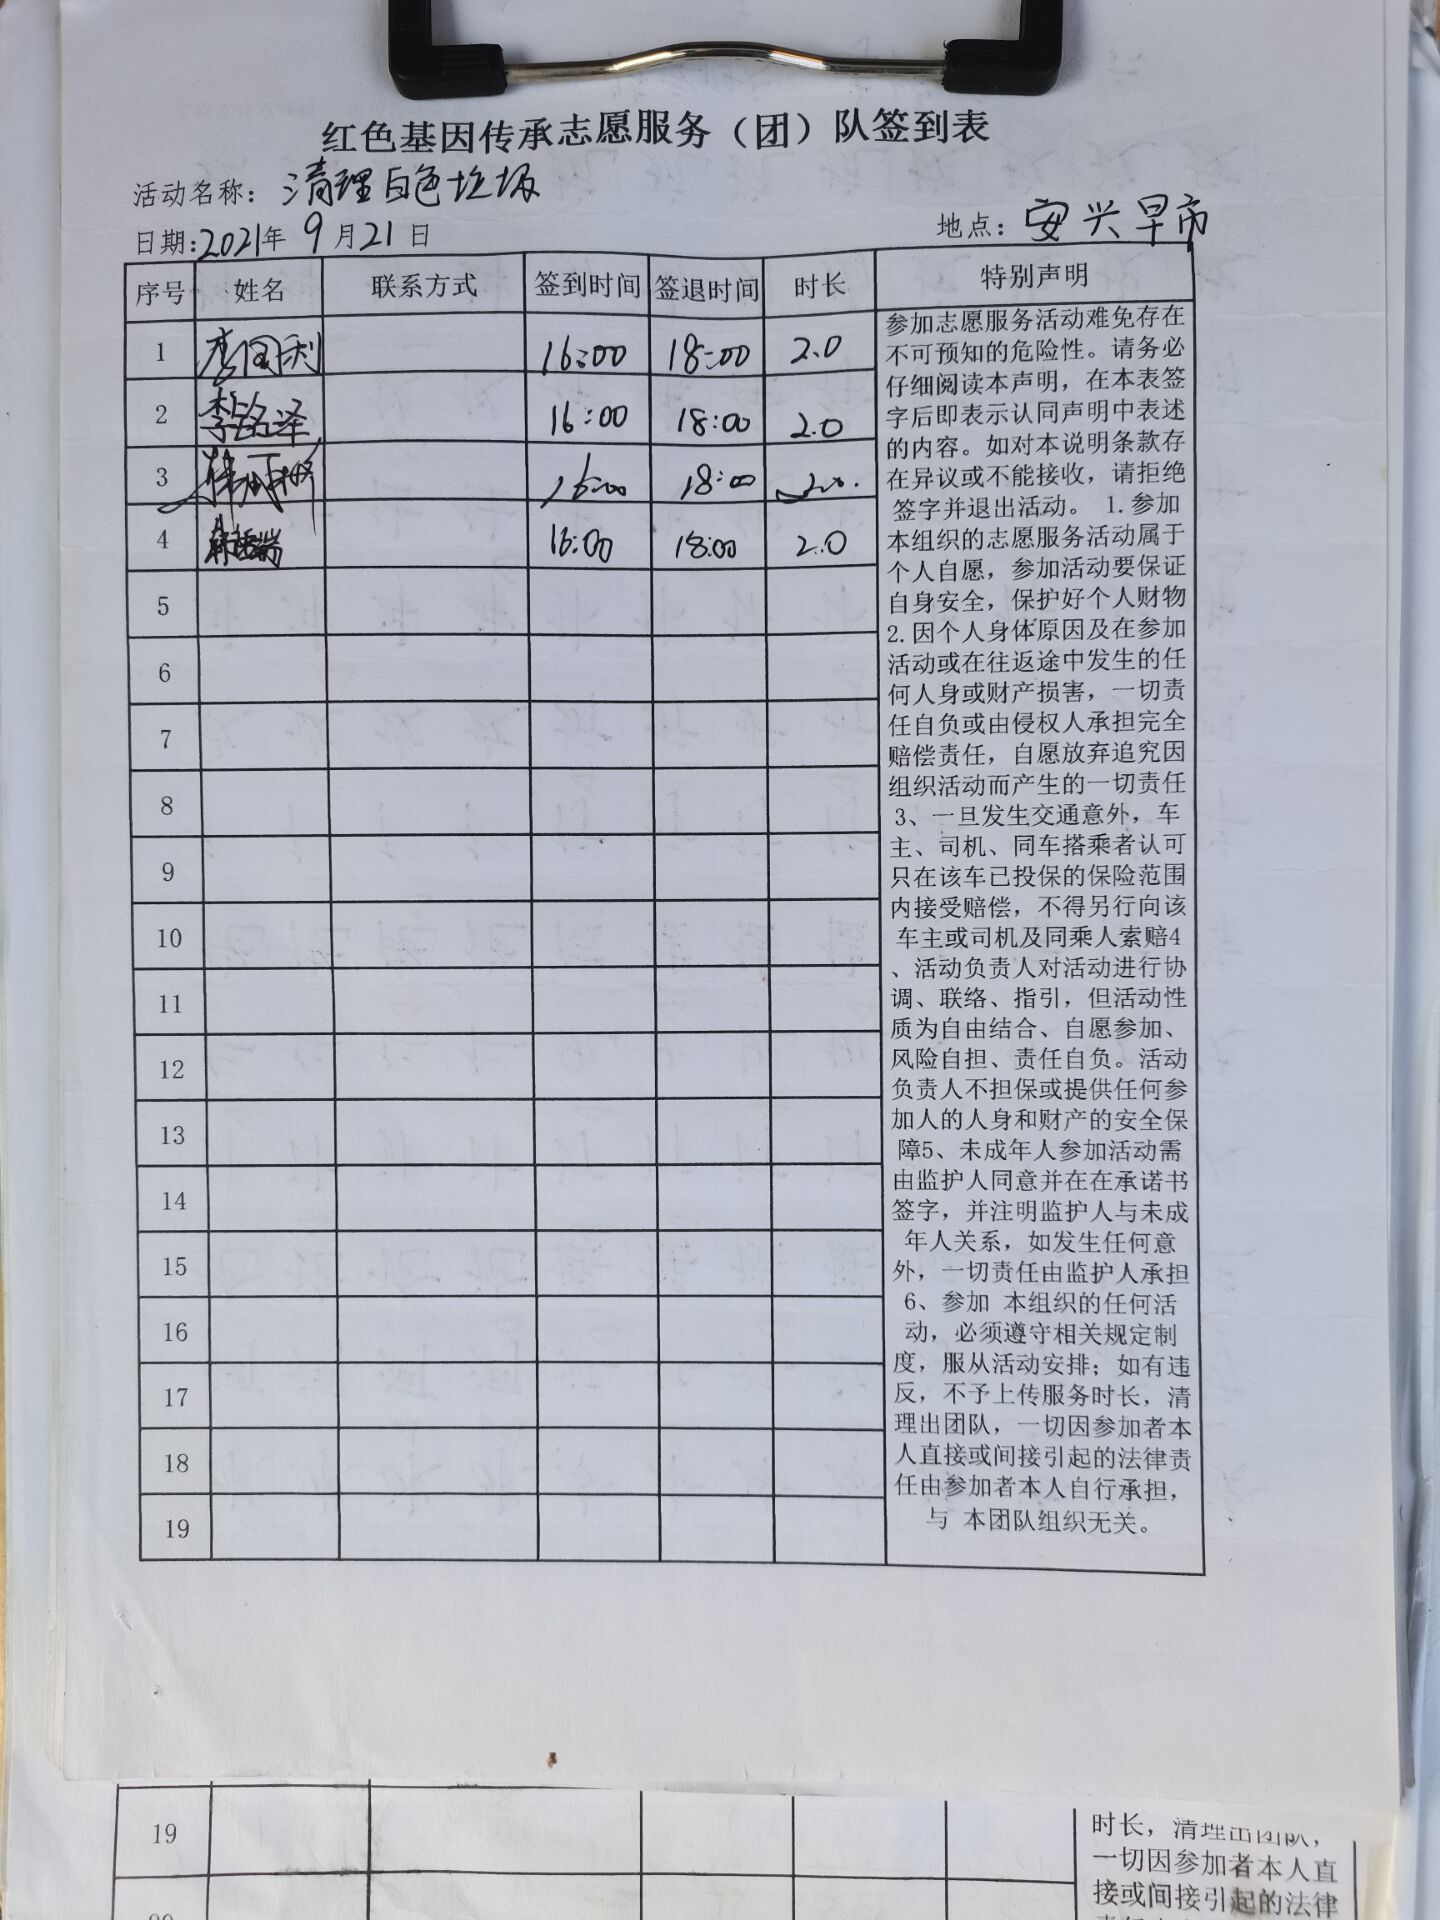 红色基因传承志愿服务（团）队签到表
活动名称：清理白色垃圾
日期:2021年 9月21日 地点：安兴早市
序号 姓名 联系方式 签到时间 签退时间 时长 特别声明
1 16:00 18:00 2.0
2 李铭泽 16:00 18:00 2.0
3 16:00 18:00 2.0.
4 16:00 18:00 2.0
5
6
7
8
9
10
11
12
13
14
15
16
17
18
19
参加志愿服务活动难免存在
不可预知的危险性。请务必
仔细阅读本声明，在本表签
字后即表示认同声明中表述
的内容。如对本说明条款存
在异议或不能接收，请拒绝
签字并退出活动。 1.参加
本组织的志愿服务活动属于
个人自愿，参加活动要保证
自身安全，保护好个人财物
2.因个人身体原因及在参加
活动或在往返途中发生的任
何人身或财产损害，一切责
任自负或由侵权人承担完全
赔偿责任，自愿放弃追究因
组织活动而产生的一切责任
3、一旦发生交通意外，车
主、司机、同车搭乘者认可
只在该车已投保的保险范围
内接受赔偿，不得另行向该
车主或司机及同乘人索赔4
、活动负责人对活动进行协
调、联络、指引，但活动性
质为自由结合、自愿参加、
风险自担、责任自负。活动
负责人不担保或提供任何参
加人的人身和财产的安全保
障5、未成年人参加活动需
由监护人同意并在在承诺书
签字，并注明监护人与未成
年人关系，如发生任何意
外，一切责任由监护人承担
6、参加 本组织的任何活
动，必须遵守相关规定制
度，服从活动安排；如有违
反，不予上传服务时长，清
理出团队，一切因参加者本
人直接或间接引起的法律责
任由参加者本人自行承担，
与 本团队组织无关。
19
时长，清理出团队，
一切因参加者本人直
接或间接引起的法律